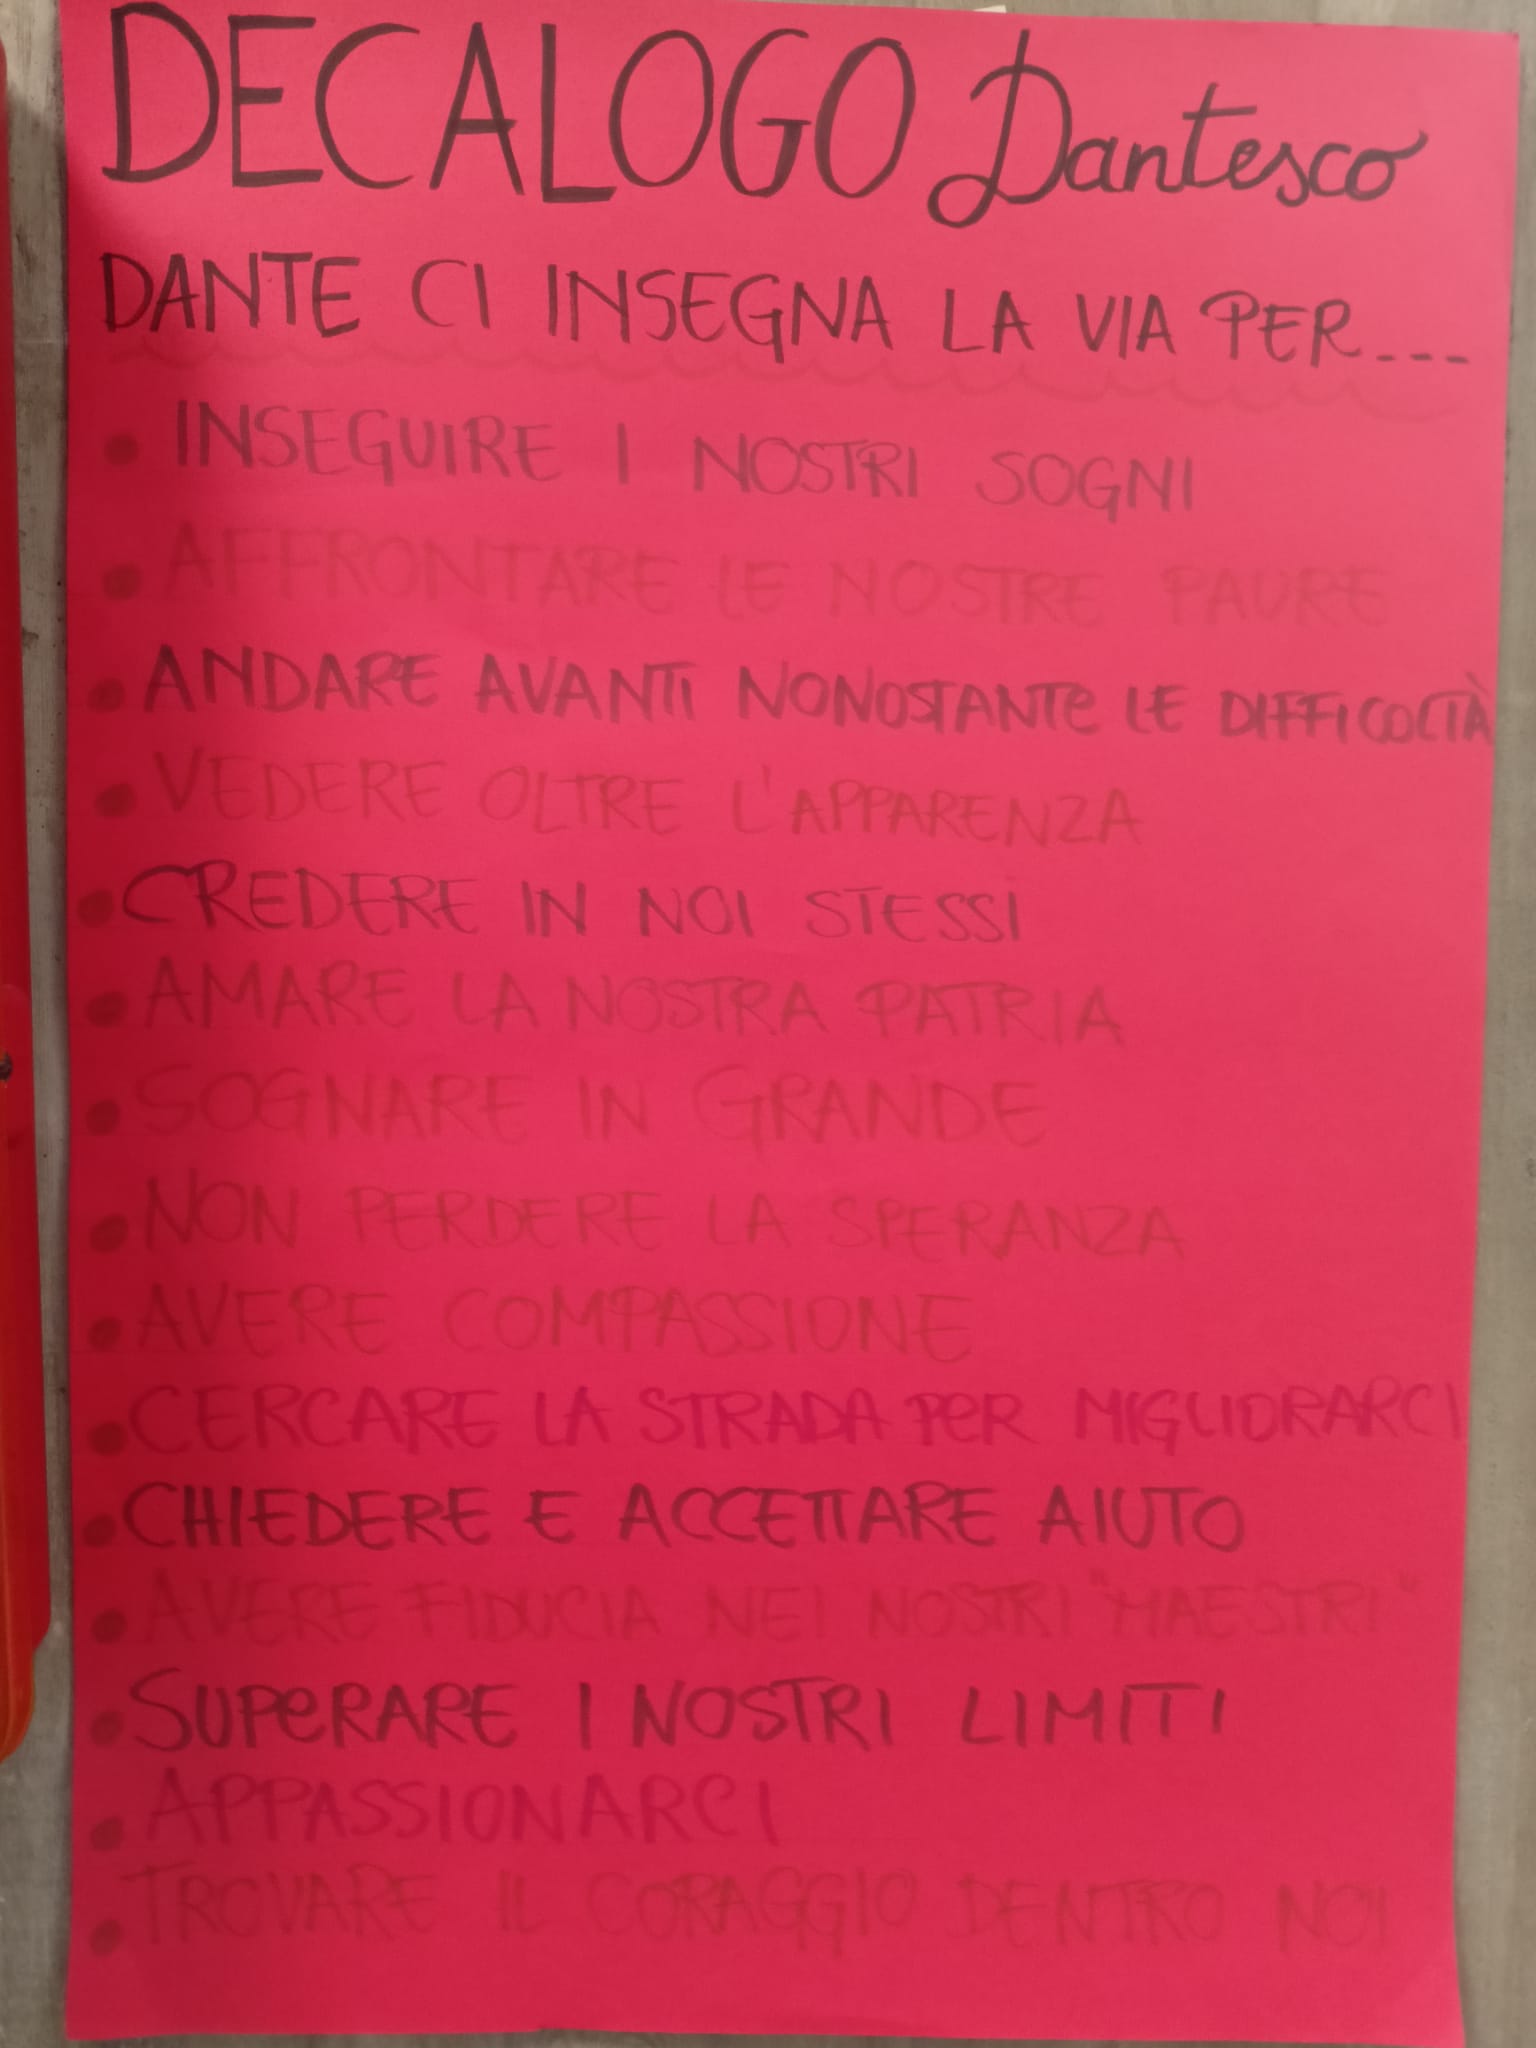 DECALOGO Dantesco
DANTE CI INSEGNA LA VIA PER...
• INSEGUIRE I NOSTRI SOGNI
• AFFRONTARE LE NOSTRE PAURE
• ANDARE AVANTI NONOSTANTE LE DIFFICOLTÀ
• VEDERE OLTRE L'APPARENZA
• CREDERE IN NOI STESSI
• AMARE LA NOSTRA PATRIA
• SOGNARE IN GRANDE
• NON PERDERE LA SPERANZA
• AVERE COMPASSIONE
• CERCARE LA STRADA PER MIGLIORARCI
• CHIEDERE E ACCETTARE AIUTO
• AVERE FIDUCIA NEI NOSTRI "MAESTRI"
• SUPERARE I NOSTRI LIMITI
• APPASSIONARCI
• TROVARE IL CORAGGIO DENTRO NOI